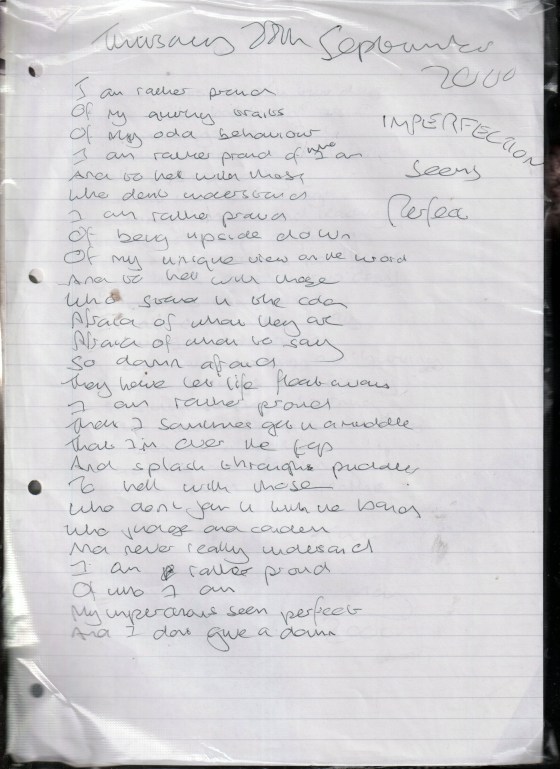 Thursday 28th September
2000
IMPERFECTION
Seems
Perfect
I am rather proud
Of my quirky traits
Of my odd behaviour
I am rather proud of who I am
And to hell with those
Who don't understand
I am rather proud
Of being upside down
Of my unique view on the world
And to hell with those
Who stand in the cold
Afraid of what they are
Afraid of what to say
So damn afraid
They have let life float away
I am rather proud
That I sometimes get in a muddle
That I'm over the top
And splash through puddles
To hell with those
Who don't join in with the band
Who judge and condemn
And never really understand
I am rather proud
Of who I am
My imperfections seem perfect
And I don't give a damn